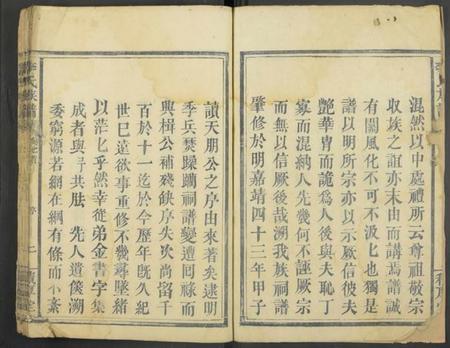 混然以中處禮所云尊祖敬宗
收族之誼亦末由而講焉譜誠
有關風化不可不汲匕也獨是
譜以明所宗亦以示厥信彼夫
艷華冑而詭為人後與夫恥丁
寡而混綿人先幾何不誣厥宗
而無以信厥後哉溯我族祠譜
肇修於明嘉靖四十三年甲子
讀天朋公之序由來著矣逮明
季兵燹躁躪祠譜變遭回祿而
興楫公補殘缺序失次尚留千
百於十一迄於今歷年既久紀
世巳遠欲事重修不幾尋墜緒
以茫匕乎然幸從弟金書字集
成者與予共牋先人遺篋溯
委窮源若網在綱有條而不紊
李氏族譜
序
二